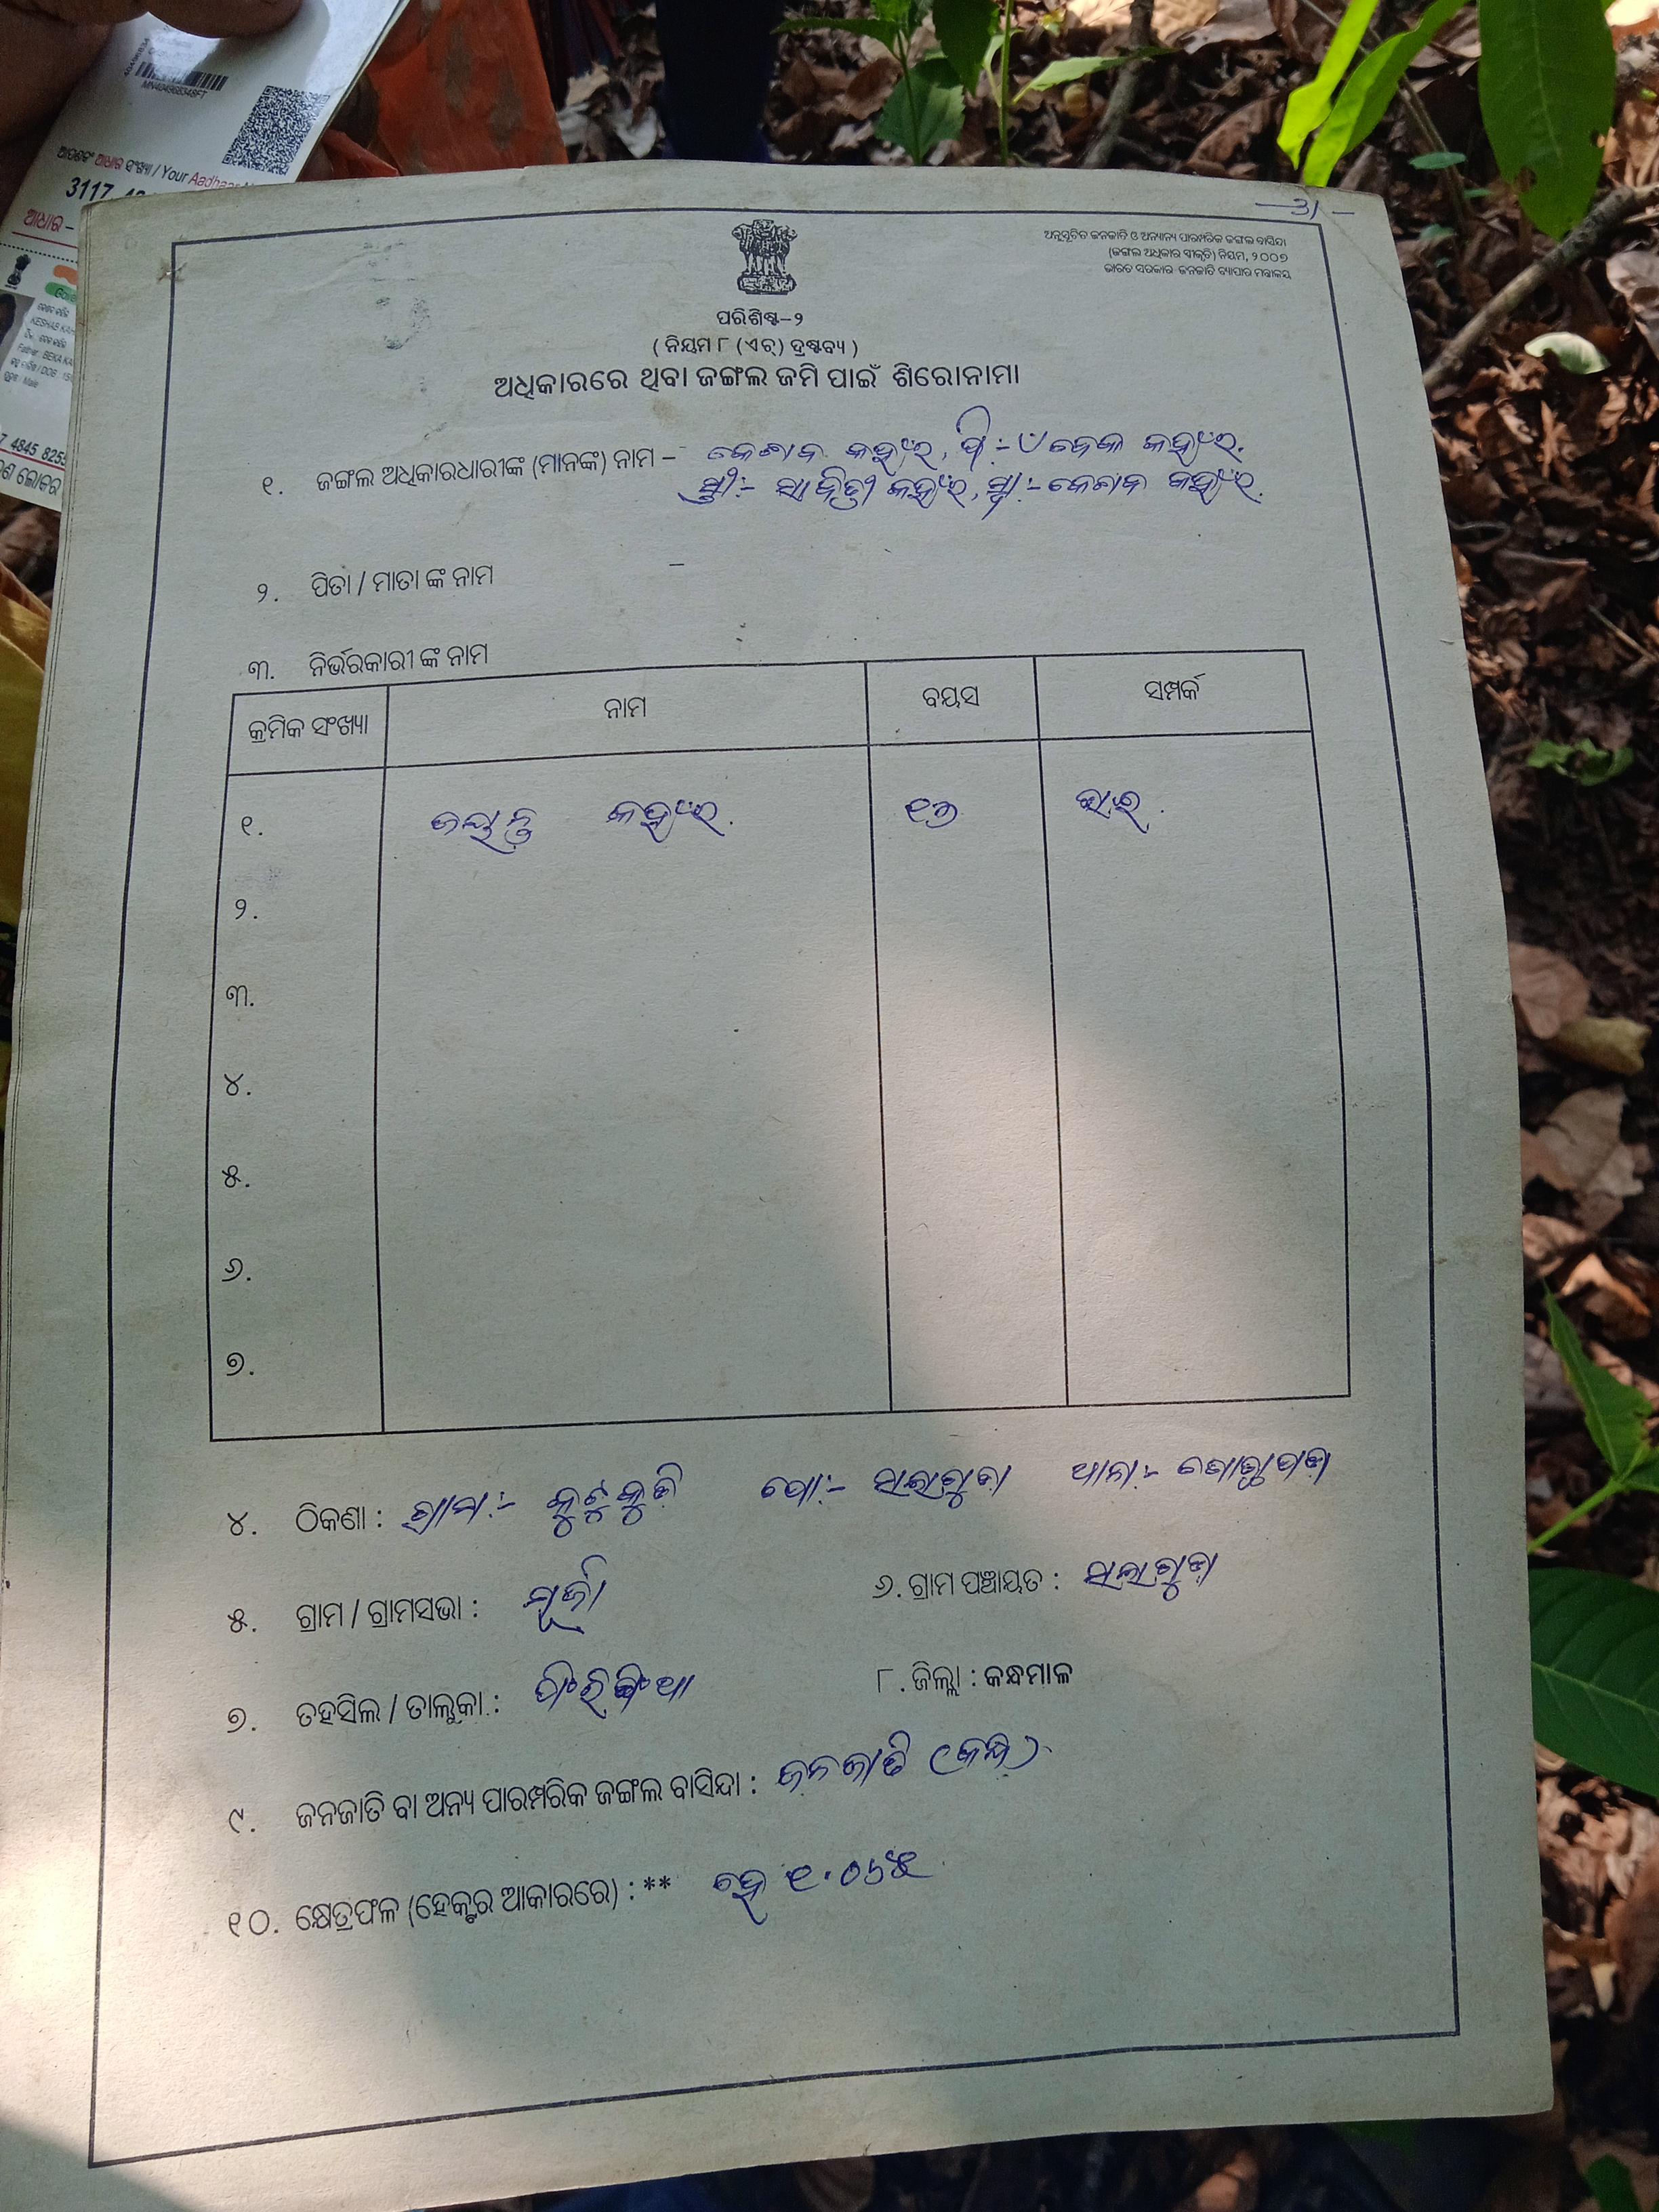 MN404968348FT
ଆପଣଙ୍କ ଆଧାର ସଂଖ୍ୟା / Your Aadhaar
3117
ଆଧାର –
KESHAB
Father : BEKA
/ DOB : 15
ପୁରୁଷ / Male
4845 8255
–31–
ଅନୁସୂଚିତ ଜନଜାତି ଓ ଅନ୍ୟାନ୍ୟ ପାରମ୍ପରିକ ଜଙ୍ଗଲ ବାସିନ୍ଦା
(ଜଙ୍ଗଲ ଅଧିକାର ସ୍ୱୀକୃତି) ନିୟମ, ୨୦୦୭
ଭାରତ ସରକାର ଜନଜାତି ବ୍ୟାପାର ମନ୍ତ୍ରାଳୟ
ପରିଶିଷ୍ଟ–୨
( ନିୟମ ୮ (ଏଚ୍) ଦ୍ରଷ୍ଟବ୍ୟ )
ଅଧିକାରରେ ଥିବା ଜଙ୍ଗଲ ଜମି ପାଇଁ ଶିରୋନାମା
୧. ଜଙ୍ଗଲ ଅଧିକାରଧାରୀଙ୍କ (ମାନଙ୍କ) ନାମ – କେଶବ କହଁର, ପି:- ୰ ବେକ କହଁର.
ସ୍ତ୍ରୀ:- ସାବିତ୍ରୀ କହଁର, ସ୍ୱା:- କେଶବ କହଁର.
୨. ପିତା / ମାତା ଙ୍କ ନାମ –
୩. ନିର୍ଭରକାରୀ ଙ୍କ ନାମ
କ୍ରମିକ ସଂଖ୍ୟା ନାମ ବୟସ ସମ୍ପର୍କ
୧. ଜୟନ୍ତ କହଁର. ୧୬
୨.
୩.
୪.
୫.
୬.
୭.
୪. ଠିକଣା : ଗ୍ରାମ:- କୁଟୁକୁଡି ପୋ:- ସଲାଗୁଡା ଥାନା:-
୫. ଗ୍ରାମ / ଗ୍ରାମସଭା : ମୂର୍ଜା ୬. ଗ୍ରାମ ପଞ୍ଚାୟତ : ସଲାଗୁଡା
୭. ତହସିଲ / ତାଲୁକା : ଟିକାବାଲି ୮. ଜିଲ୍ଲା : କନ୍ଧମାଳ
୯. ଜନଜାତି ବା ଅନ୍ୟ ପାରମ୍ପରିକ ଜଙ୍ଗଲ ବାସିନ୍ଦା : ଜନଜାତି (କନ୍ଧ)
୧୦. କ୍ଷେତ୍ରଫଳ (ହେକ୍ଟର ଆକାରରେ) : ** ହେ ୧.୦୬୫